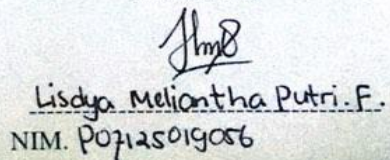 Lisdya Meliantha Putri. F.
NIM. P07125019056